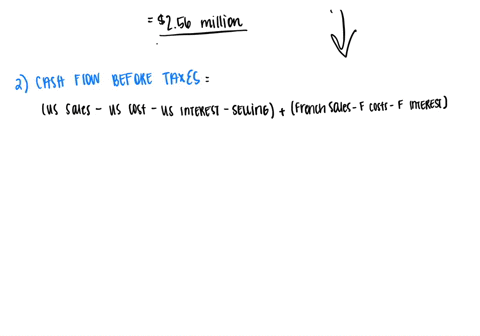 = $2.56 million
2) CASH FLOW BEFORE TAXES =
(US Sales - US COST - US INTEREST - SELLING) + (French Sales - F COSTS - F INTEREST)